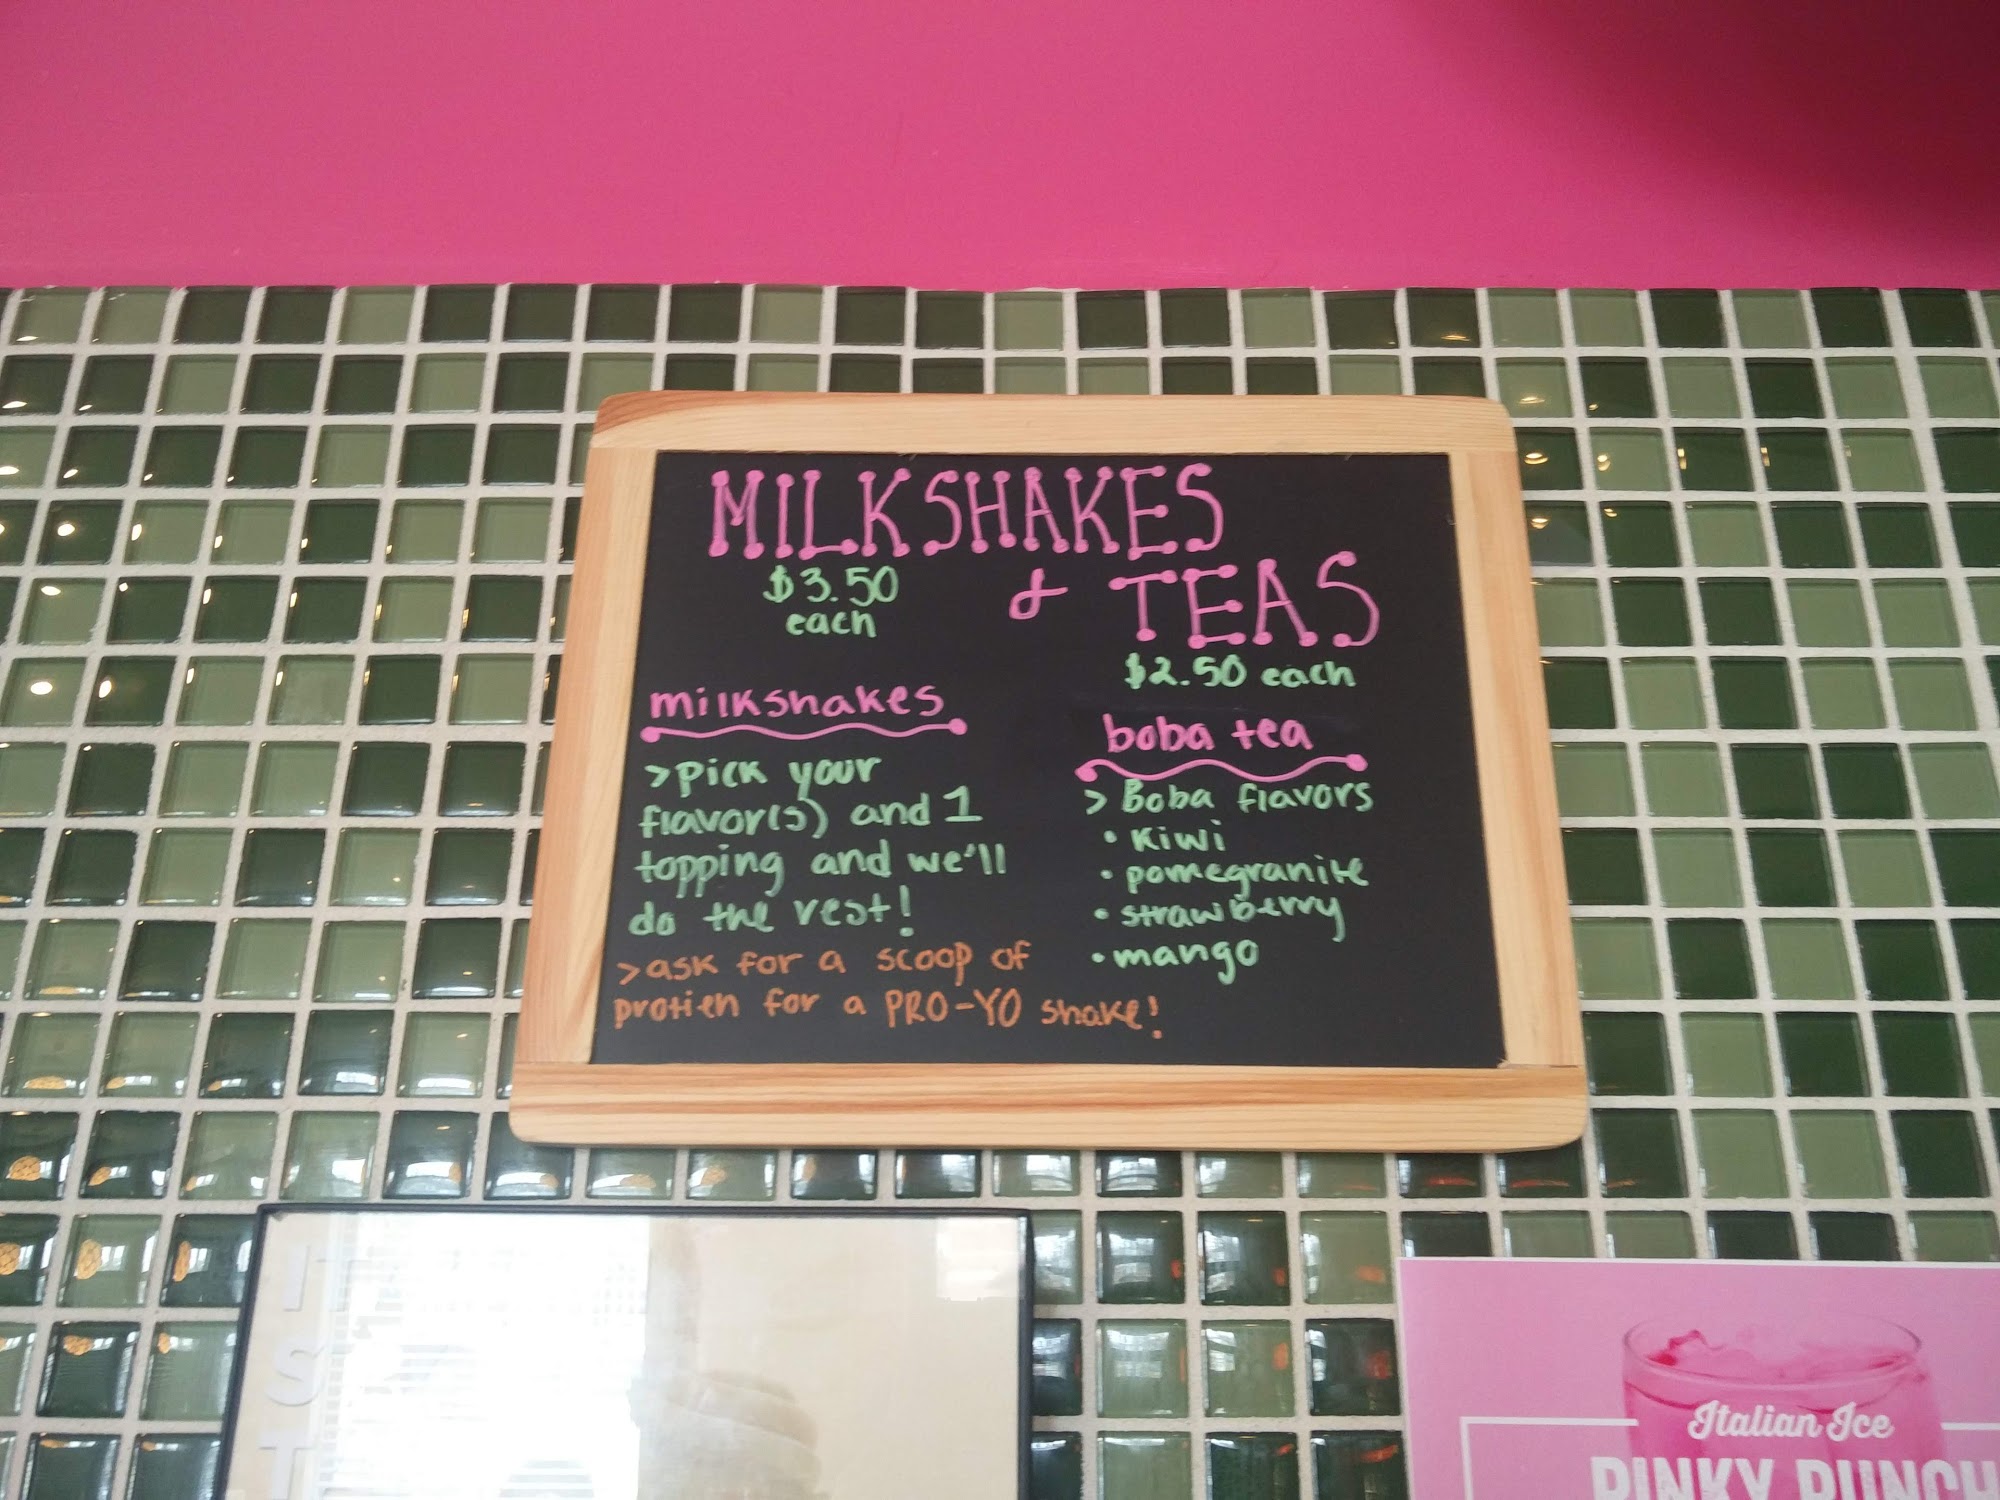 MILKSHAKES
& TEAS
$3.50
each
$2.50 each
milkshakes
>pick your
flavor(s) and 1
topping and we'll
do the rest!
>ask for a scoop of
protien for a PRO-YO shake!
boba tea
> Boba flavors
• kiwi
• pomegranite
• strawberry
• mango
I
S
T
Italian Ice
PINKY PUNCH